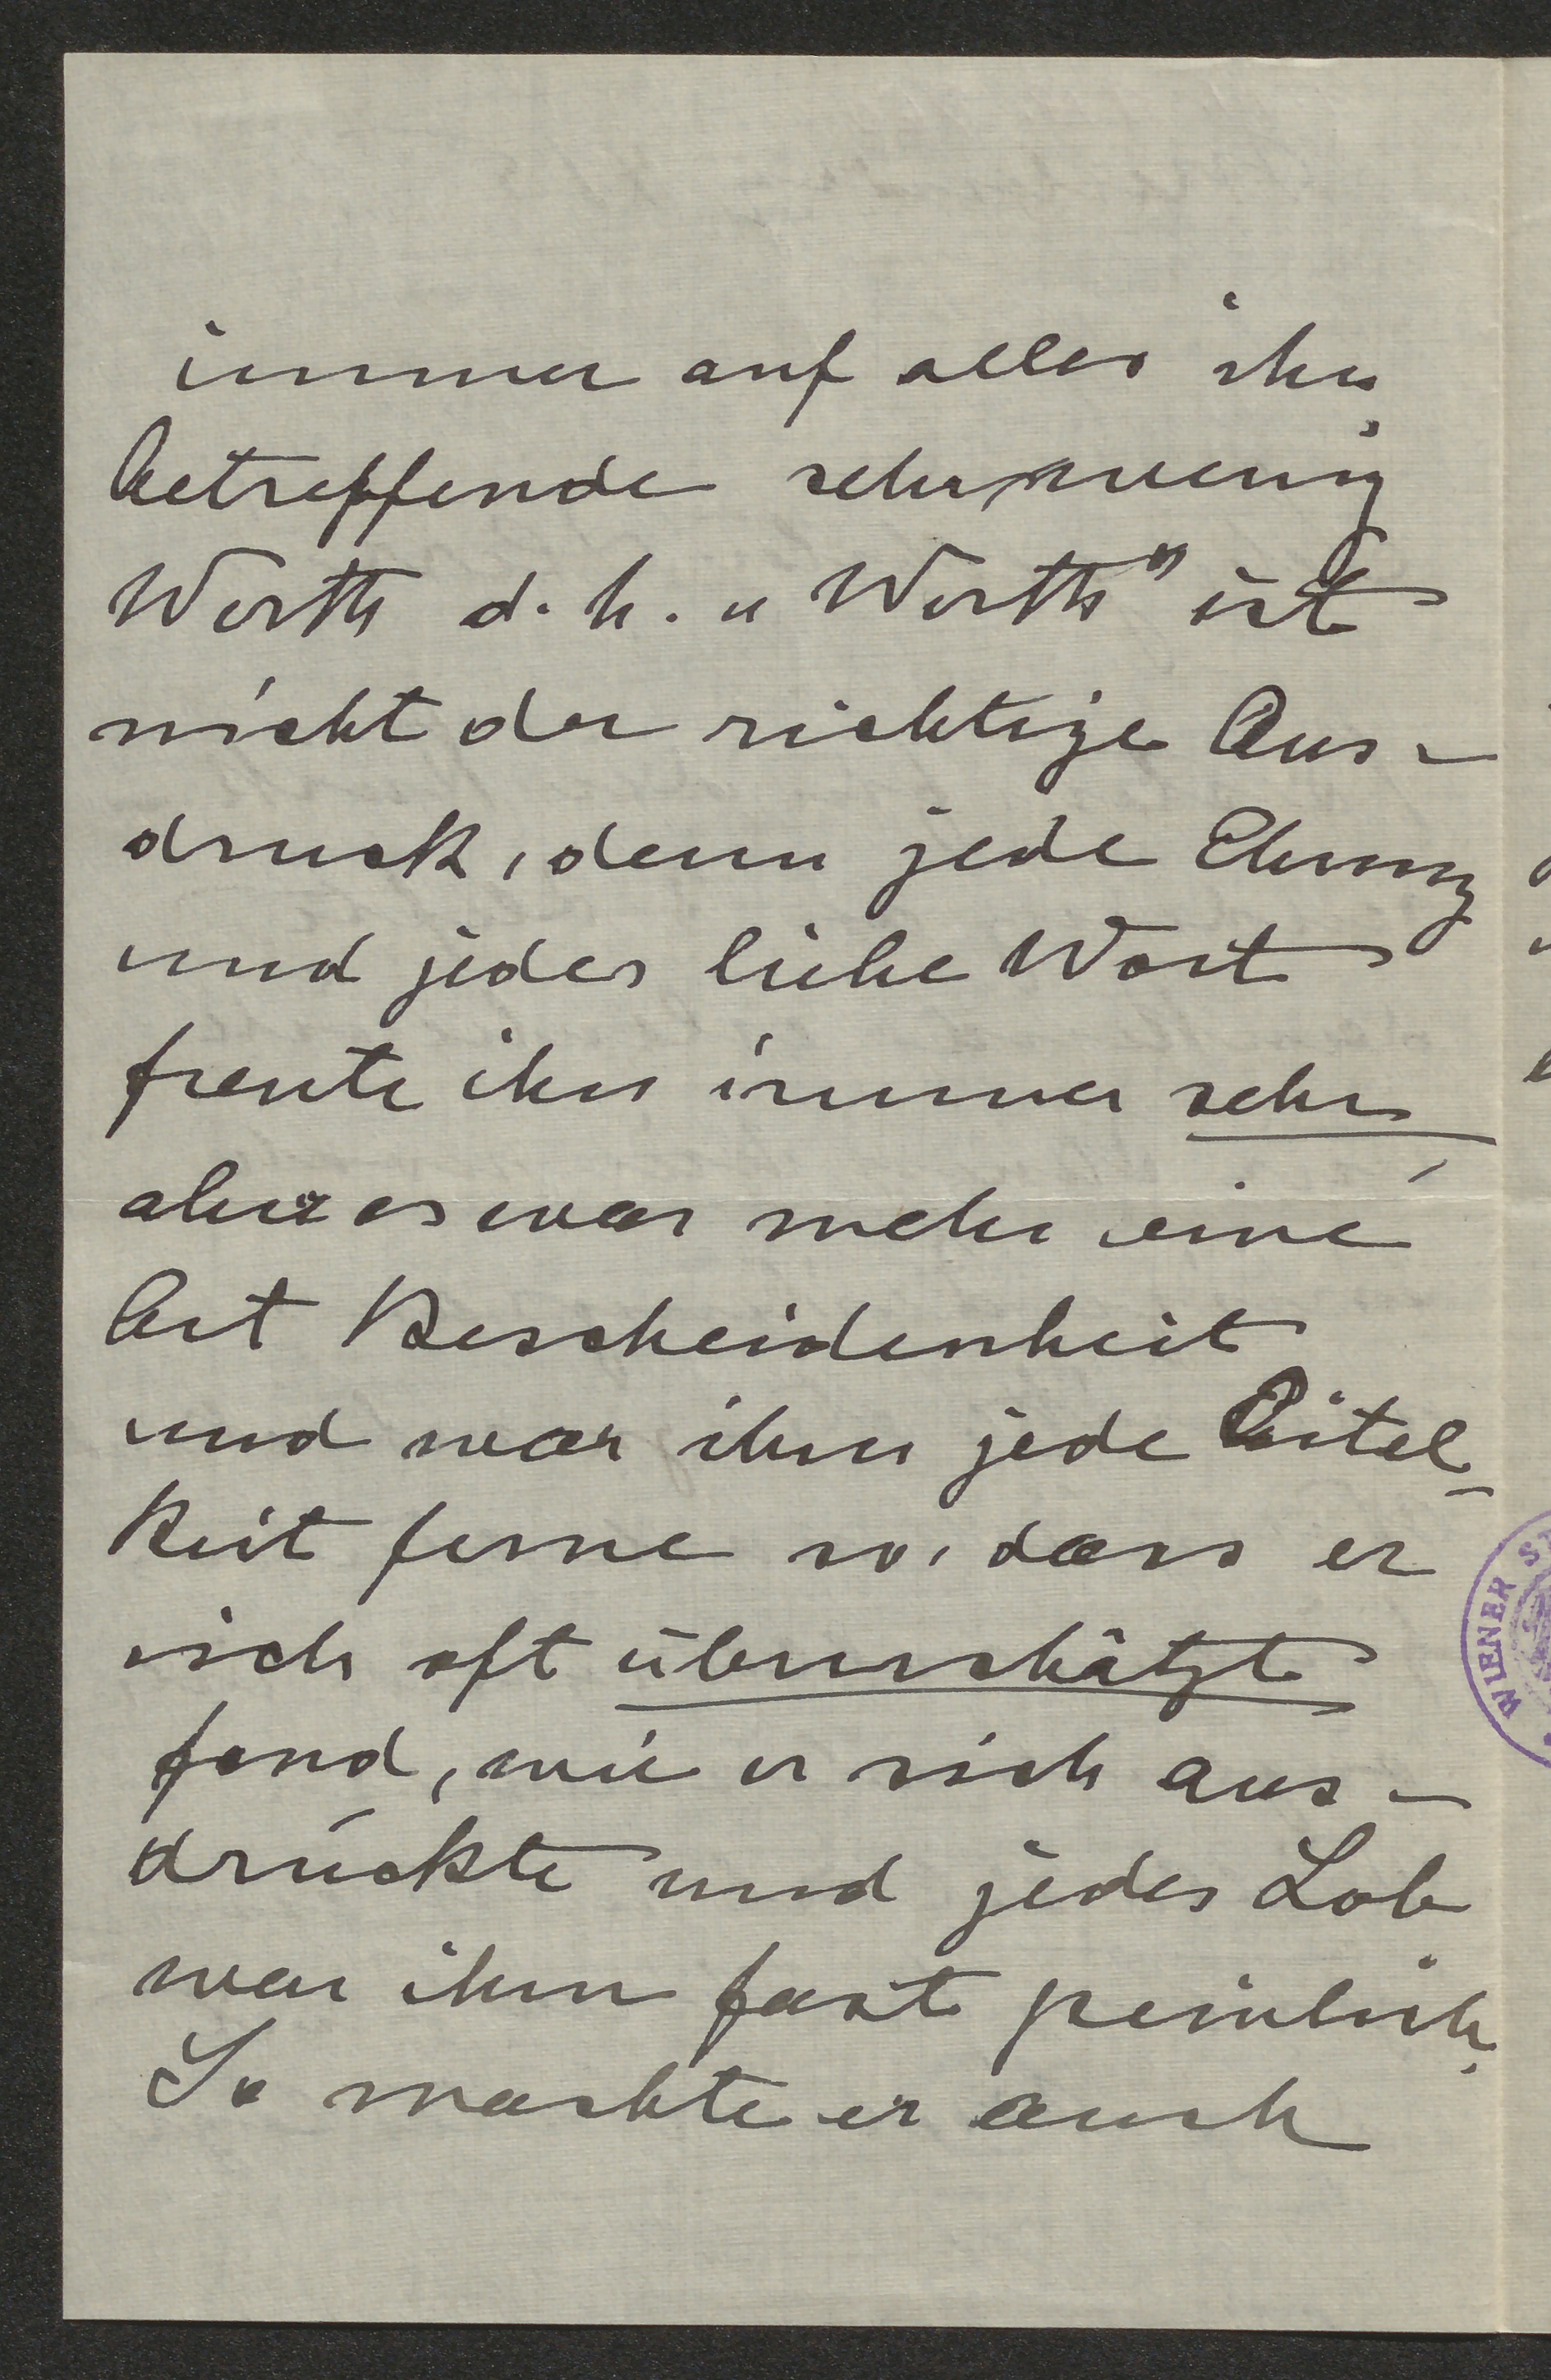 immer auf alles ihn
betreffende sehr wenig
Werth d. h. „Werth" ist
nicht der richtige Aus-
druck, denn jede Ehrung
und jedes liebe Wort
freute ihn immer sehr
aber es war mehr eine
Art Bescheidenheit
und war ihm jede Eitel-
keit ferne so, dass er
sich oft überschätzt
fand, wie er sich aus-
drückte und jedes Lob
war ihm fast peinlich.
So machte er auch
WIENER ST